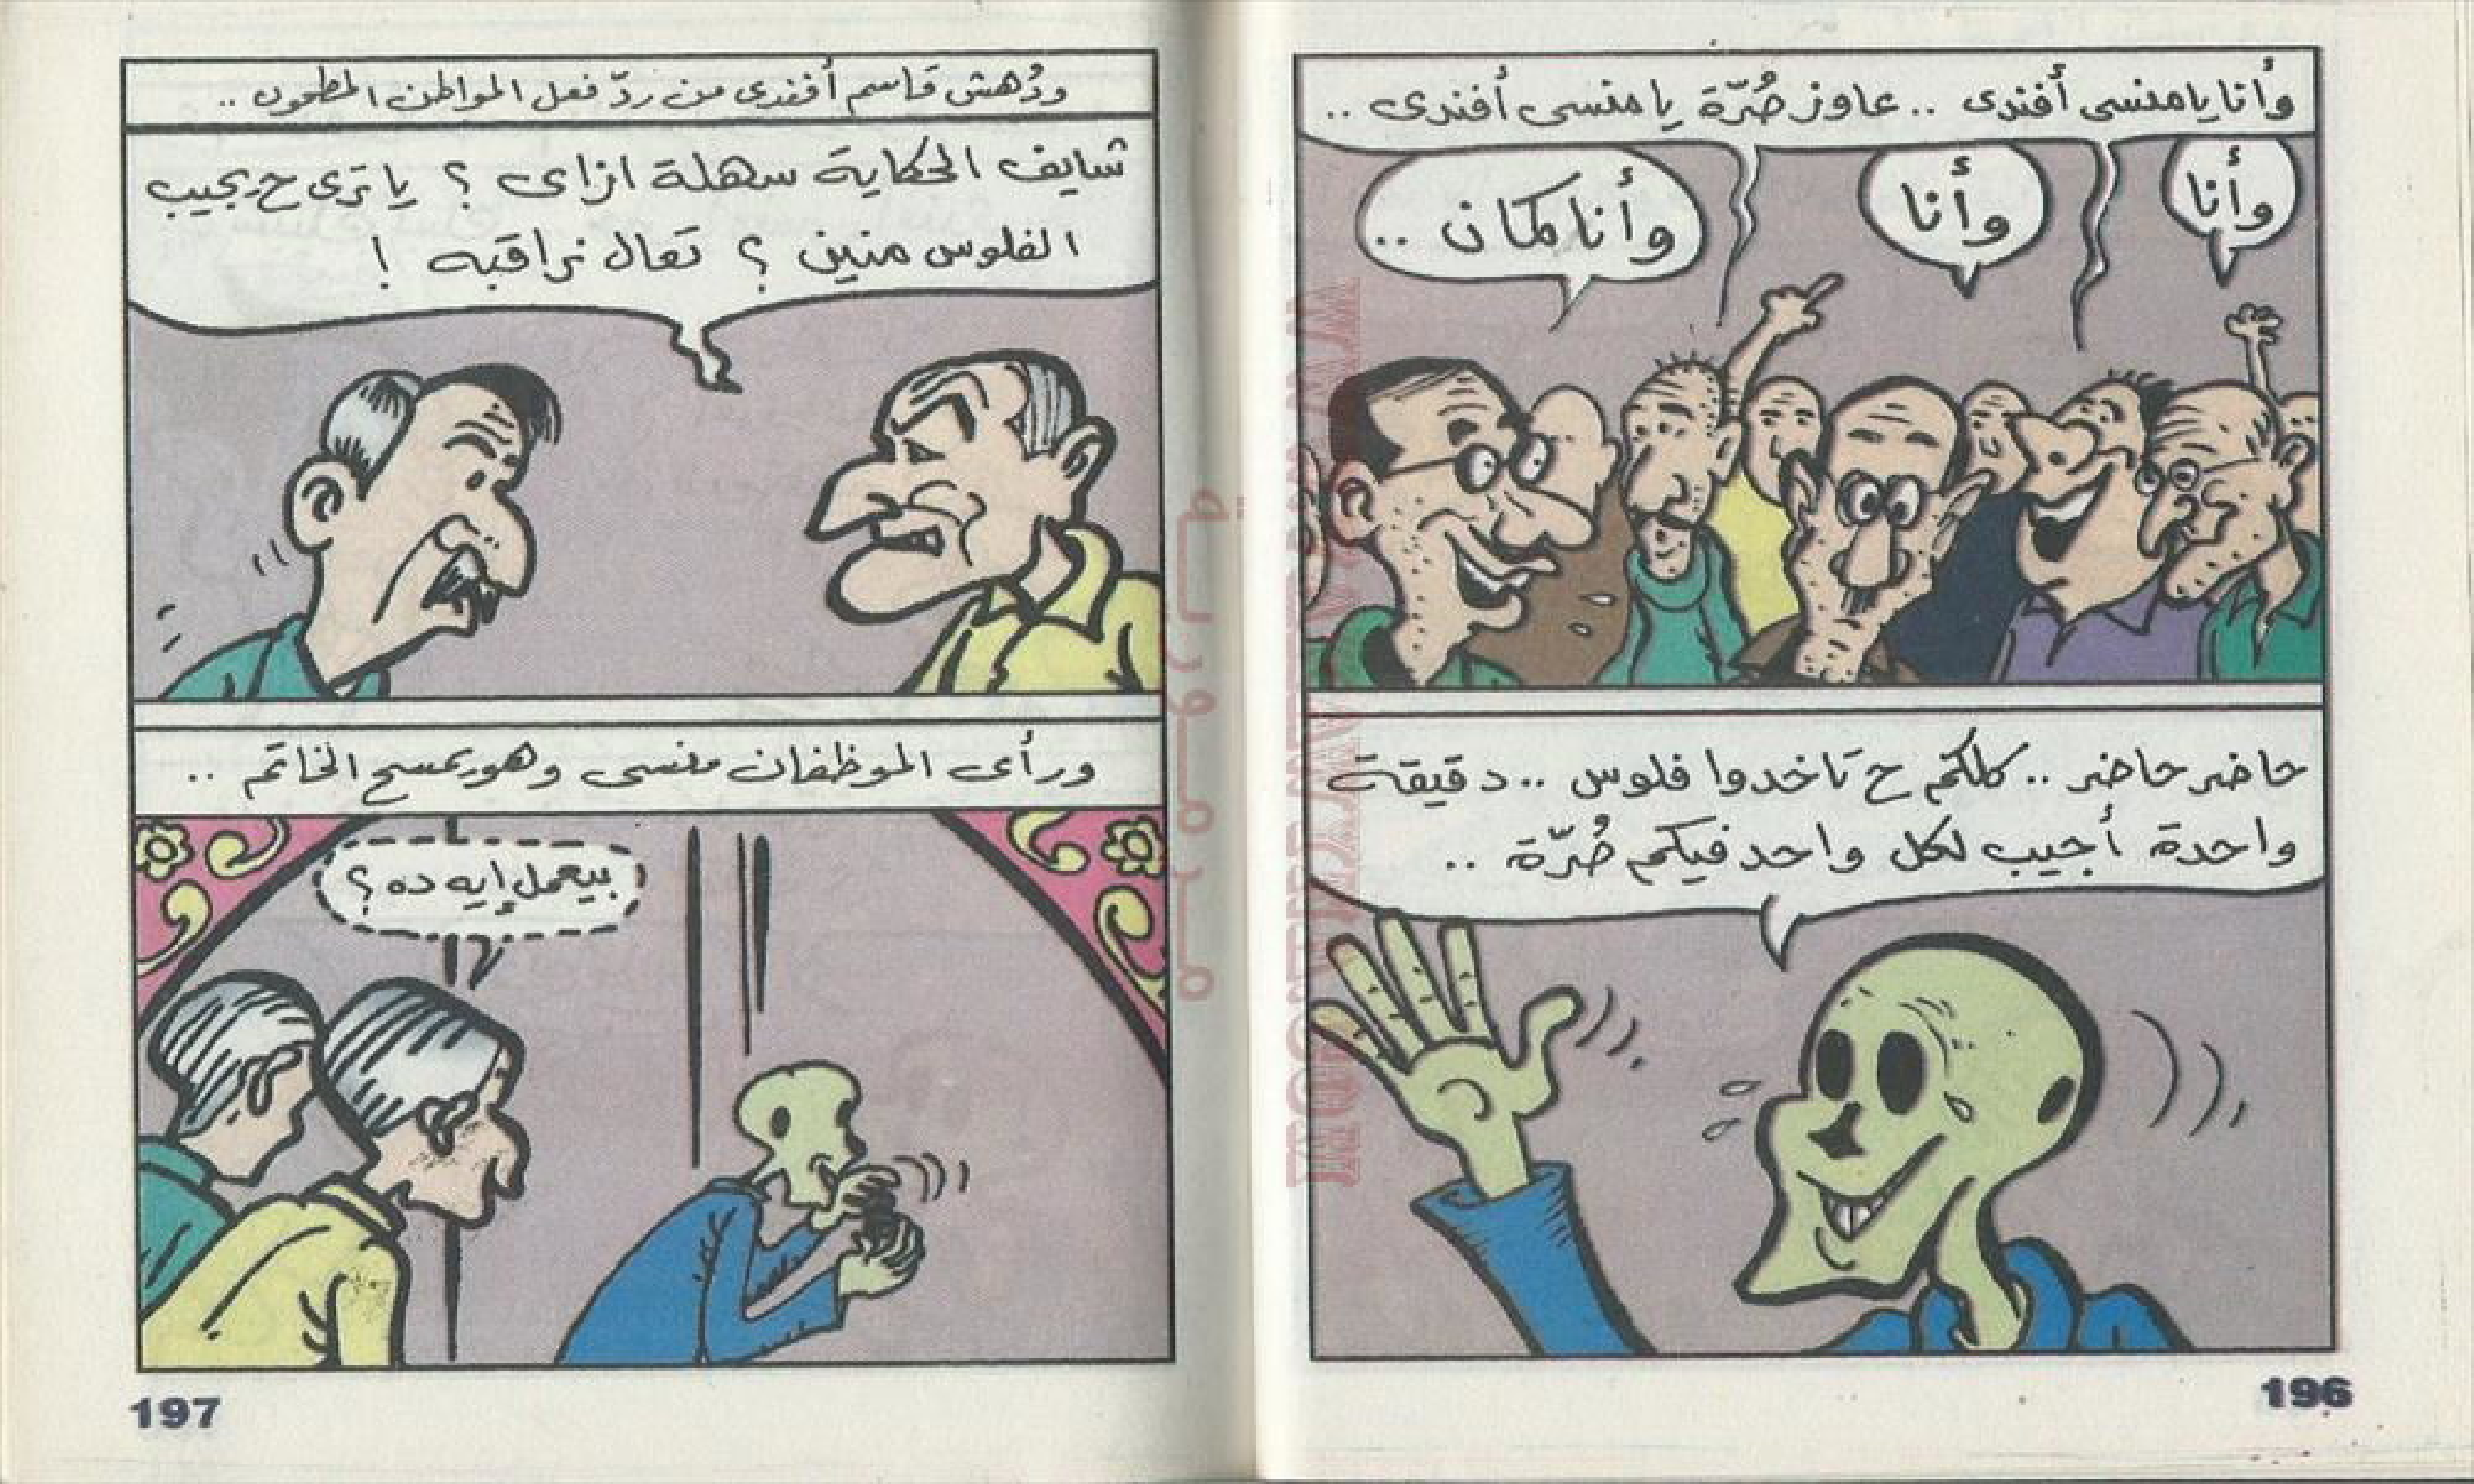 وأنا يا منسى أفندى .. عاوز صُرّة يا منسى أفندى ..
وأنا
وأنا
وأنا كمان ..
حاضر حاضر .. كلكم ح تاخدوا فلوس .. دقيقة
واحدة أجيب لكل واحد فيكم صُرّة ..
196
ودُهش قاسم أفندى من ردّ فعل المواطن المطحون ..
شايف الحكاية سهلة ازاى ؟ يا ترى ح يجيب
الفلوس منين ؟ تعال نراقبه !
ورأى الموظفان منسى وهو يمسح الخاتم ..
بيعمل إيه ده ؟
197